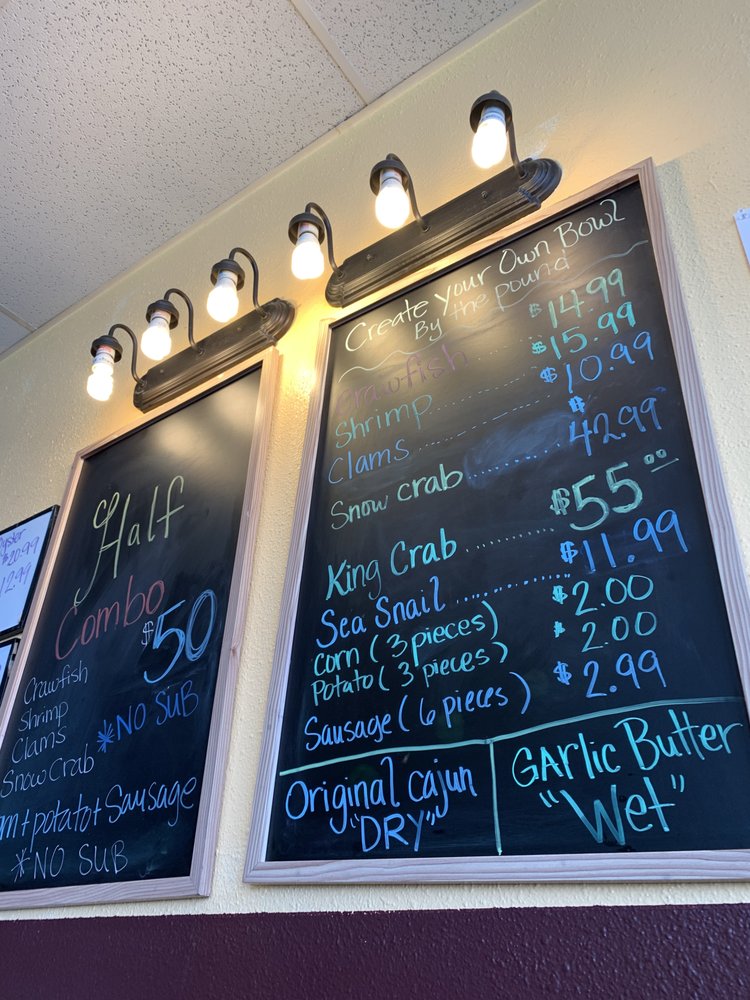 yster
$20.99
12.99
Half
Combo
$50
Crawfish
Shrimp
Clams
Snow Crab
*NO SUB
rn + potato + Sausage
*NO SUB
Create Your Own Bowl
By the pound
Crawfish ..... $14.99
Shrimp ..... $15.99
Clams ..... $10.99
Snow crab ..... $42.99
King Crab ..... $55.00
Sea Snail ..... $11.99
Corn (3 pieces) $2.00
Potato (3 pieces) $2.00
Sausage (6 pieces) $2.99
Original Cajun
"DRY"
GARlic Butter
"Wet"